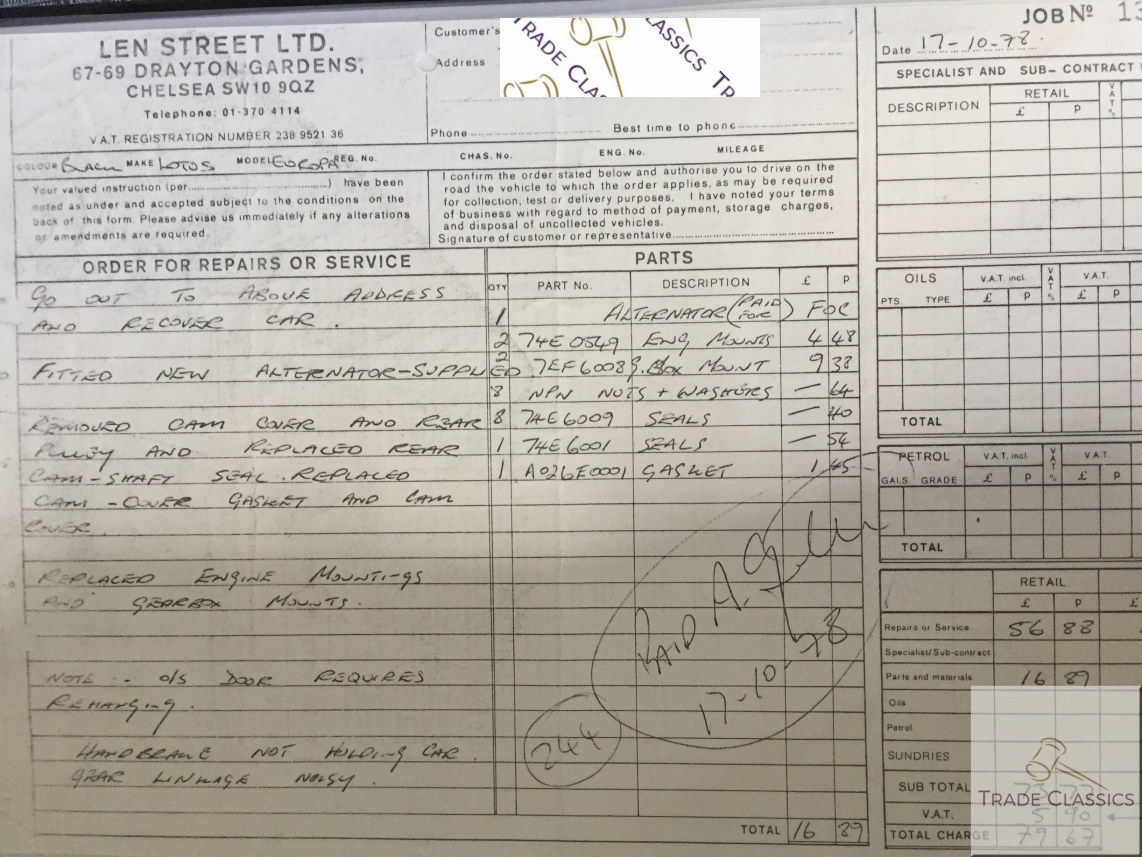 LEN STREET LTD.
67-69 DRAYTON GARDENS,
CHELSEA SW10 9QZ
Telephone: 01-370 4114
V.A.T. REGISTRATION NUMBER 238 9521 36
Customer's
Address
Phone
Best time to phone
TRADE CLASSICS
JOB No 13
Date 17-10-78.
COLOUR BLACK MAKE LOTUS MODEL EUROPA REG. No.
CHAS. No. ENG. No. MILEAGE
Your valued instruction (per ) have been
noted as under and accepted subject to the conditions on the
back of this form. Please advise us immediately if any alterations
or amendments are required.
I confirm the order stated below and authorise you to drive on the
road the vehicle to which the order applies, as may be required
for collection, test or delivery purposes. I have noted your terms
of business with regard to method of payment, storage charges,
and disposal of uncollected vehicles.
Signature of customer or representative
ORDER FOR REPAIRS OR SERVICE
GO OUT TO ABOVE ADDRESS
AND RECOVER CAR.
FITTED NEW ALTERNATOR-SUPPLIED
REMOVED CAM COVER AND REAR
PULLEY AND REPLACED REAR
CAM-SHAFT SEAL. REPLACED
CAM-COVER GASKET AND CAM
COVER.
REPLACED ENGINE MOUNTINGS
AND GEARBOX MOUNTS.
NOTE:- O/S DOOR REQUIRES
REHANGING.
HANDBRAKE NOT HOLDING CAR.
GEAR LINKAGE NOISY.
PARTS
QTY PART No. DESCRIPTION £ P
1 ALTERNATOR (PAID FOR) FOC
2 74E0549 ENG MOUNTS 4 48
2 7EF6008 G.BOX MOUNT 9 38
8 NPN NUTS + WASHERS — 64
8 74E6009 SEALS — 40
1 74E6001 SEALS — 54
1 A026E0001 GASKET 1 45
PAID
17-10-78
244
TOTAL 16 89
SPECIALIST AND SUB-CONTRACT
DESCRIPTION RETAIL VAT%
£ P
OILS V.A.T. incl. VAT% V.A.T.
PTS. TYPE £ P £ P
TOTAL
PETROL V.A.T. incl. VAT% V.A.T.
GALS. GRADE £ P £ P
TOTAL
RETAIL
£ P £
Repairs or Service 56 88
Specialist/Sub-contract
Parts and materials 16 89
Oils
Petrol
SUNDRIES
SUB TOTAL 73 77
V.A.T. 5 90
TOTAL CHARGE 79 67
TRADE CLASSICS